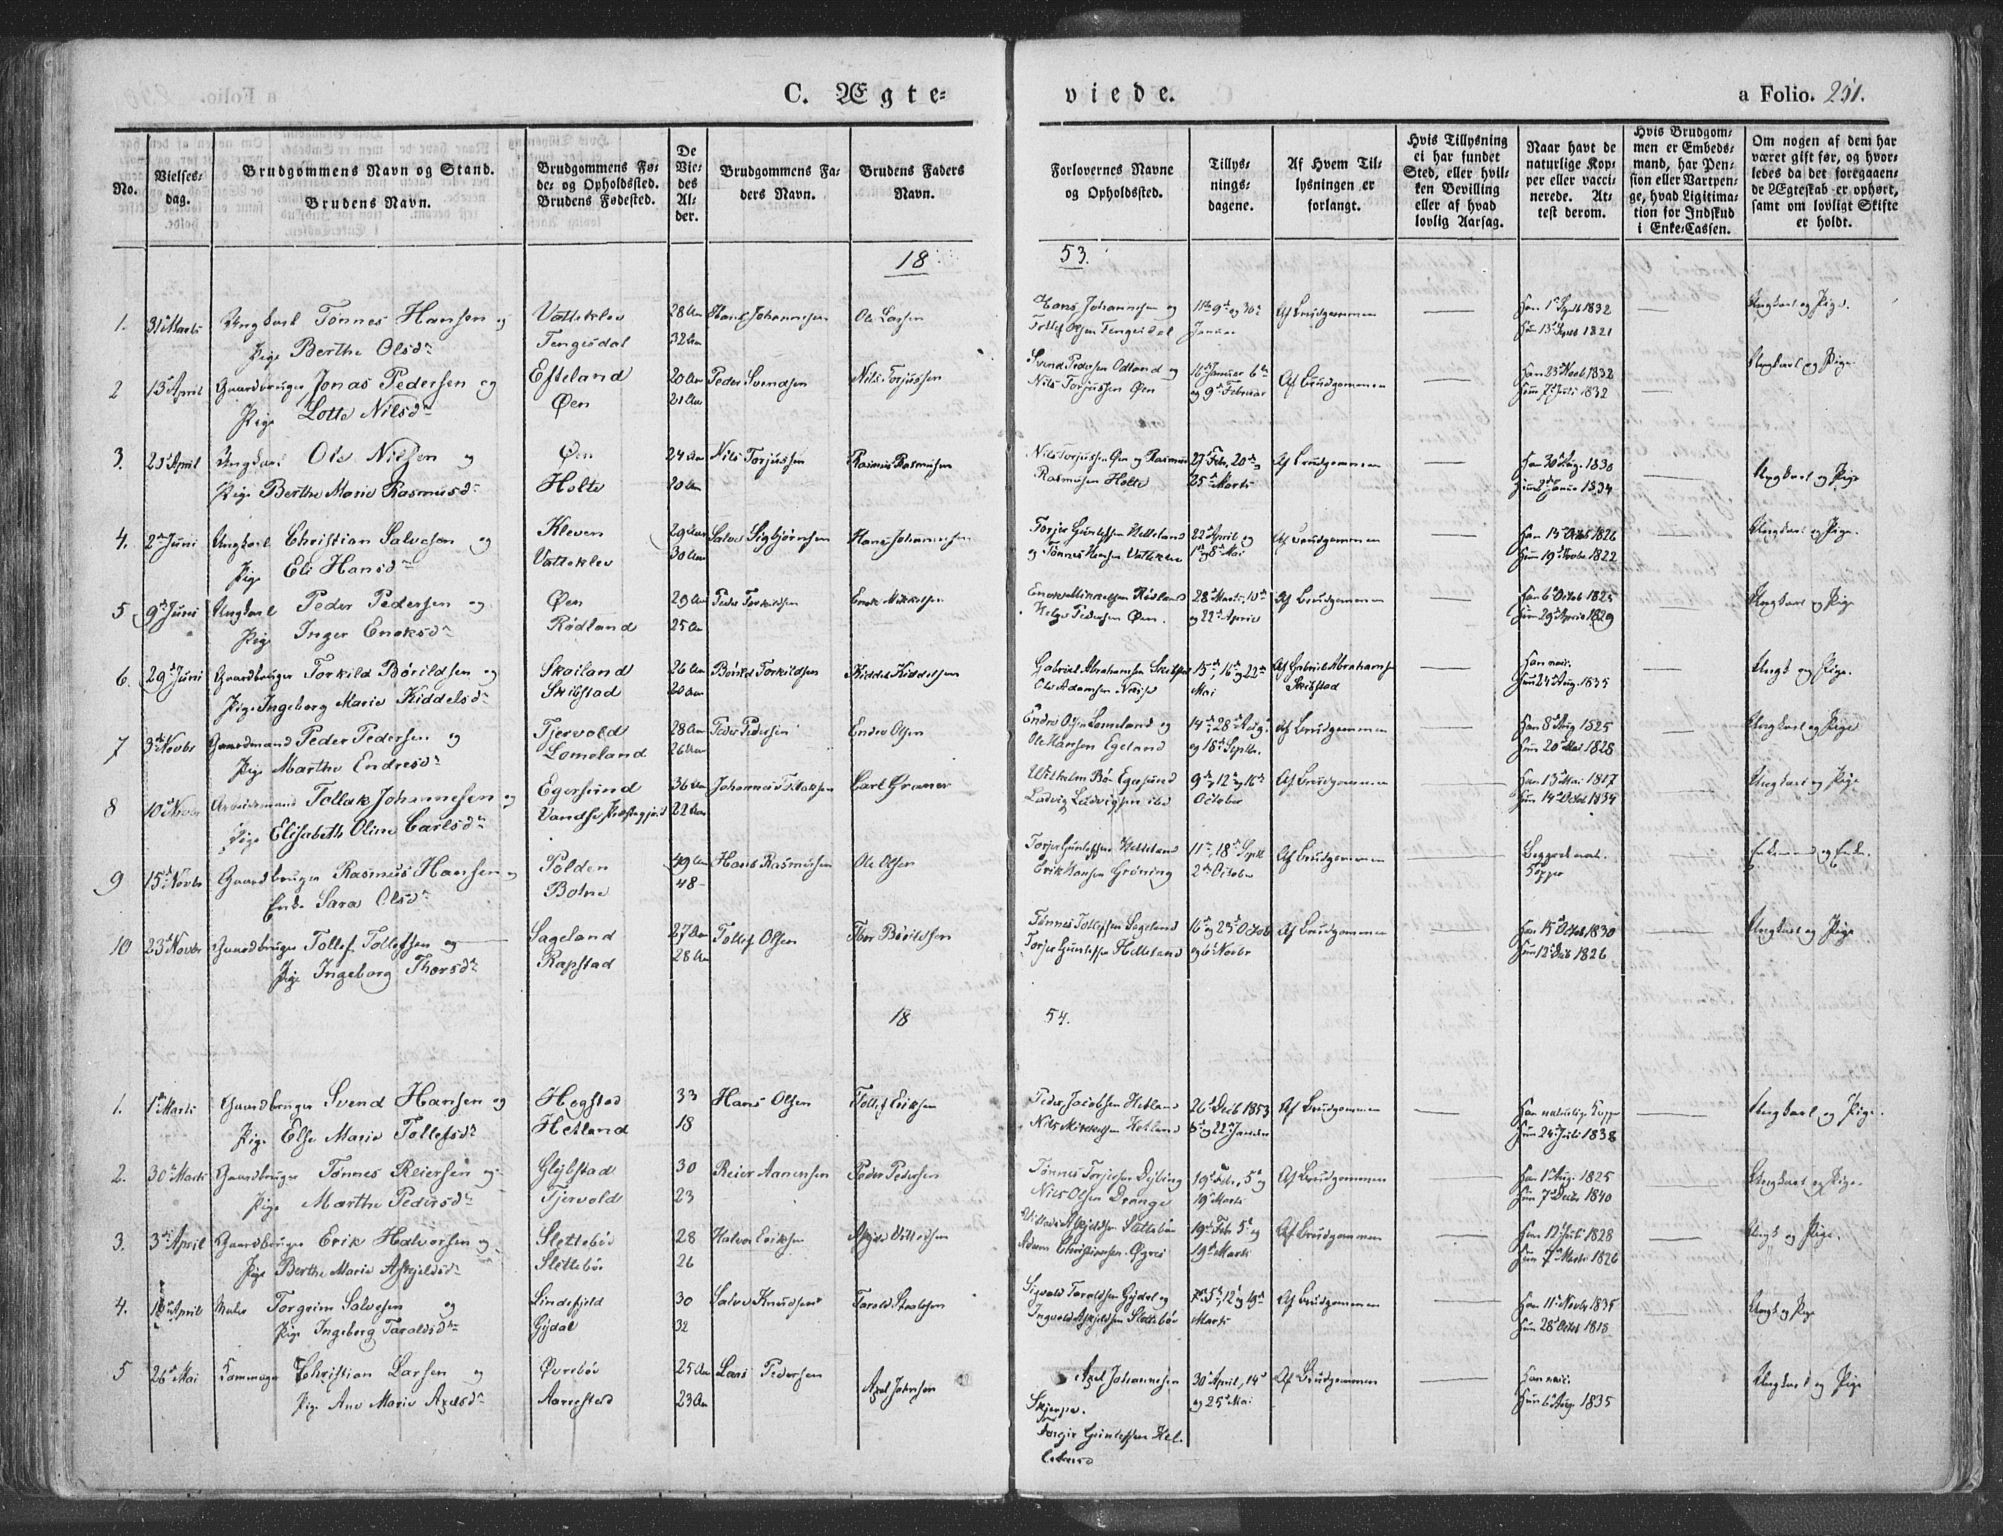 C. Ægte=
viede.
a Folio. 251.
No.
Vielses=
dag.
Brudgommens Navn og Stand.
Brudens Navn.
Brudgommens Fø=
de= og Opholdssted.
Brudens Fødested.
De
Vie=
des
Al=
der.
Brudgommens Fa=
ders Navn.
Brudens Faders
Navn.
Forlovernes Navne
og Opholdssted.
Tillys=
nings=
dagene.
Af Hvem Til=
lysningen er
forlangt.
Hvis Tillysning
ei har fundet
Sted, eller hvil=
ken Bevilling
eller af hvad
lovlig Aarsag.
Naar havt de
naturlige Kop=
per eller vacci=
nerede. At=
test derom.
Hvis Brudgom=
men er Embeds=
mand, har Pen=
sion eller Vartpen=
ge, hvad Ligitima=
tion for Indskud
i Enke=Cassen.
Om nogen af dem har
været gift før, og hvor=
ledes da det foregaaen=
de Ægteskab er ophørt,
samt om lovligt Skifte
er holdt.
18 53.
1. 31 Marts Ungkarl Tønnes Hansen og Vatteklev 28 Aar Hans Johannesen Ole Larsen Hans Johannesen og 11te 9de og 30te Af Brudgommen Han 1 Sept 1832 Ungkarl og Pige.
Pige Berthe Olsdr Tengesdal 32 Aar Tollef Olsen Tengesdal Januar Hun 13 Sept 1821
2 13 April Gaardbruger Jonas Pedersen og Efteland 20 Aar Peder Svendsen Nils Torjussen Svend Pedersen Odland og 16 Januar 6te Af Brudgommen Han 23 Novb 1832 Ungkarl og Pige
Pige Lotte Nilsdr Øen 21 Aar Nils Torjussen Øen og 9de Februar Hun 7 Juli 1832
3. 21 April Ungkarl Ole Nilsen og Øen 24 Aar Nils Torjussen Rasmus Rasmusen Nils Torjussen Øen og Rasmus 27 Febr, 20de Af Brudgommen Han 30 Aug. 1830 Ungkarl og Pige
Pige Berthe Marie Rasmusdr Holte 20 Aar Rasmusen Holte 25de Marts Hun 2 Janur 1834
4. 2den Juni Ungkarl Christian Salvesen og Kleven 29 Aar Salve Sigbjørnsen Hans Johannesen Torjer Guntessen Helleland 22de April og Af Brudgommen Han 15 Octob 1826 Ungkarl og Pige.
Pige Eli Hansdr Vatteklev 30 Aar og Tønnes Hansen Vatteklev 1te og 8de Mai Hun 19 Novbr 1822
5 9de Juni Ungkarl Peder Pedersen og Øen 29 Aar Peder Torkildsen Enok Mikkelsen Enok Mikkelsen Rødland 28 Marts, 10de Af Brudgommen Han 6 Octob 1825 Ungkarl og Pige
Pige Inger Enoksdr Rødland 25 Aar Helge Pedersen Øen. og 22de April Hun 29 April 1829
6 29de Juni Gaardbruger Torkild Børildsen og Skailand 26 Aar Børild Torkildsen Kiddel Kiddelsen Gabriel Abrahamsen Skibstad 15de, 16 og 22de Af Gabriel Abrahamsen Han vacc. Ungk og Pige.
Pige Ingeborg Marie Kiddelsdr Skibstad 20 Aar Ole Adamsen Mai Skibstad Hun 24 Aug. 1835
7 3de Novbr Gaardmand Peder Pedersen og Tjervold 28 Aar Peder Pedersen Endre Olsen Endre Olsen Lomeland og 14de 28de Aug. Af Brudgommen Han 8 Aug 1825 Ungkarl og Pige
Pige Marthe Endresdr Lomeland 26 Aar Ole Hansen Egeland og 18de Septbr. Hun 20 Mai 1828
8 10 Novbr Arbeidsmand Tollak Johannesen og Egersund 36 Aar Johannes Tollaksen Carl Graner Wilhelm Bøe Egersund 9de, 12te og 16de Af Brudgommen Han 13 Mai 1817 Ungkarl og Pige
Pige Elisabeth Oline Carlsdr Vandsø Præstegjeld 22 Aar Ludvig Ludvigsen ibd October Hun 14 Octob 1834
9 15 Novbr Gaardbruger Rasmus Hansen og Polden 49 Aar Hans Rasmusen Ole Olsen Torjer Guntessen Helleland 11te, 18de Sept Af Brudgommen Begge de nat. Enkemand og Enke
Enke Sara Olsdr Botne 48 Erik Hansen Grøning 2den October Kopper
10 23de Novbr Gaardbruger Tollef Tollefsen og Sageland 27 Aar Tollef Olsen Thor Børildsen Tønnes Tollefsen Sageland 16de og 23de Octob Af Brudgommen Han 15 Octob 1830 Ungkarl og Pige
Pige Ingeborg Thorsdr Rapstad 28 Aar Torjer Guntessen Helleland og 6te Novbr Hun 12 Deb 1826
18 54.
1. 1ste Marts Gaardbruger Svend Hansen og Hogstad 33 Hans Olsen Tollef Eriksen Peder Jacobsen Hetland 26 Decb 1853 Af Brudgommen Han naturlig Kopper Ungkarl og Pige.
Pige Else Marie Tollefsdr Hetland 18 Nils Mikkelsen Hetland 8de og 22de Januar Hun 24 Juli 1838
2. 30 Marts Gaardbruger Tønnes Reiersen og 30 Reier Aanensen Peder Pedersen Tønnes Torjesen 19de Febr, 5te Af Brudgommen Han 1 Aug. 1825 Ungkarl og Pige.
Pige Marthe Pedersdr Tjervold 23 Niels Olsen Drange 19 Marts Hun 7 Decbr 1840
3. 3die April Gaardbruger Erik Halvorsen og Slettebø 28 Halvor Eriksen 19de Febr 5te og Af Brudgommen Han 12 Juli 1828 Ungk og Pige.
Pige Berthe Marie Askjeldsdr Slettebø 26 Adam Christiansen 19de Marts Hun 7 Marts 1826
4. April Maler Torgrim Salvesen og Lindefjeld 30 Salve Knudsen Tarald Sigvald Taraldsen Gydal og 5te, 12te og 19de Af Brudgommen Han 11 Novbr 1835 Ungk og Pige
Pige Ingeborg Taraldsdr Gydal 32 Ingvald Askjeldsen Slettebø Marts Hun 28 Octob 1818
5 26de Mai Christian Larsen og Øvrebø 25 Aar Lars Pedersen Axel Johnsen Axel Johannesen 30 April, 14de Af Brudgommen Han vacc. Ungkarl og Pige
Pige Ane Marie Axelsdr Aarrestad 23 Aar Skjerpe. og 25de Mai Hun 6 Aug. 1835
Torgir Guntessen Hel-
leland